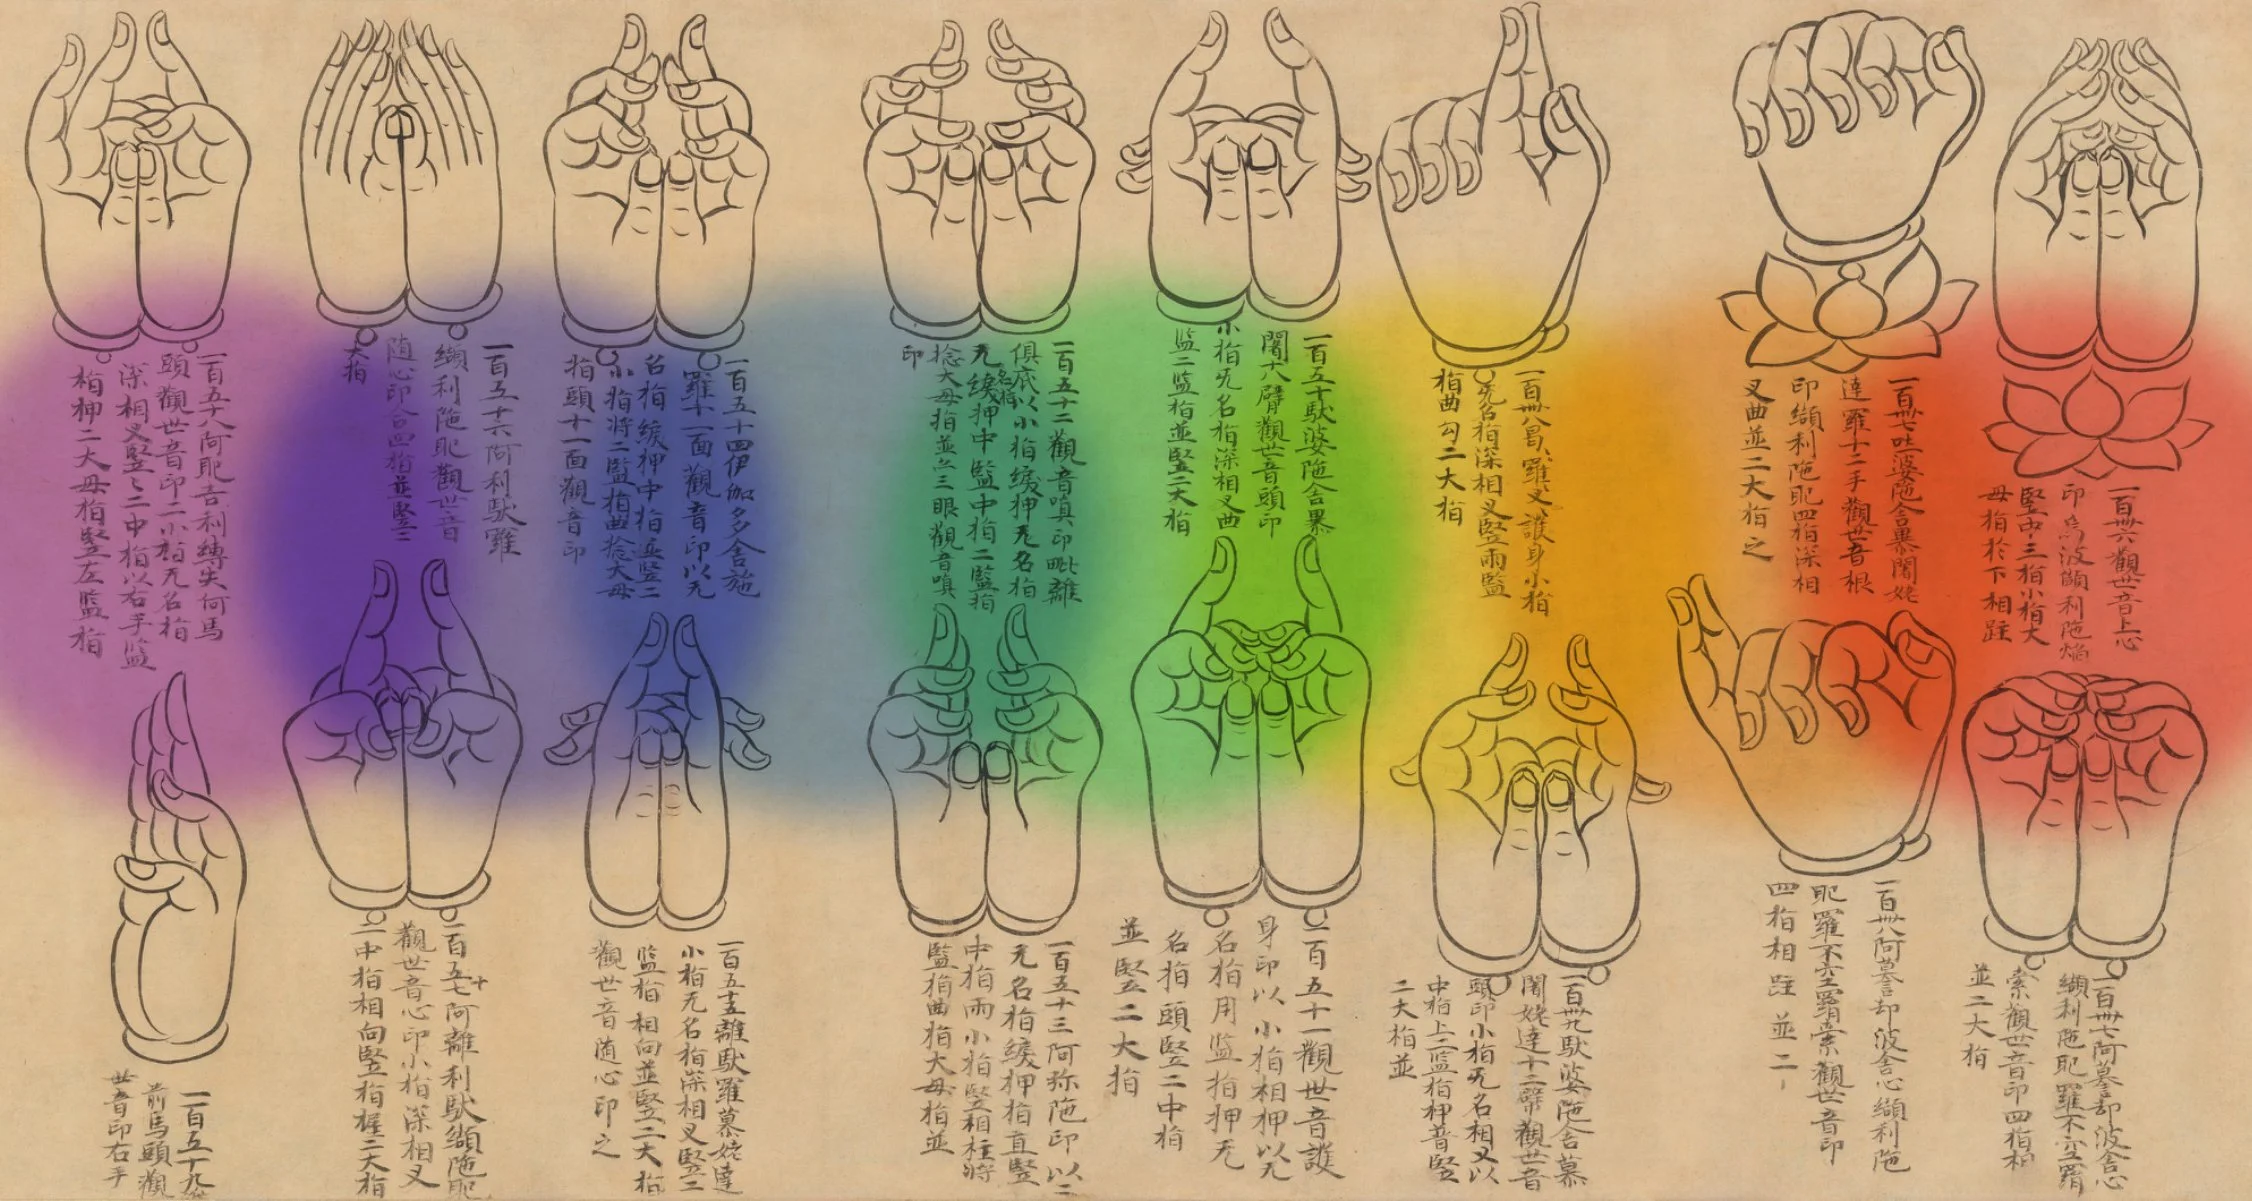 一百卌六觀世音上心
印烏波頗利陁焔
竪中三指小指大
母指於下相跓
一百卌七阿慕却波舍心
纈利陁耶羅不空羂
索觀世音印四指相
並二大指
一百卌七吐婆陁舍慕闍姥
達羅十二手觀世音根
印纈利陁耶四指深相
叉曲並二大指之
一百卌八阿慕却波舍心纈利陁
耶羅不空羂索觀世音印
四指相跓並二
一百卌八曷羅叉護身小指
无名指深相叉竪兩監
指曲勾二大指
一百卌九馱婆陁舍慕
闍姥達十二臂觀世音
頭印小指无名相叉以
中指上二監指押普竪
二大指並
一百五十馱婆陁舍慕
闍十八臂觀世音頭印
小指无名指深相叉曲
監二監指並竪二大指
一百五十一觀世音護
身印以小指相押以无
名指用監指押无
名指頭竪二中指
並竪二大指
一百五十二觀音嗔印毗離
俱底以小指緩押无名指
无名指緩押中監中指二監指
捻大母指並亦三眼觀音嗔
印
一百五十三阿弥陁印以二
无名指緩押指直竪
中指兩小指竪相柱將
監指曲指大母指並
一百五十四伊伽多舍施
羅十一面觀音印以无
名指緩押中指並竪二
小指將二監指曲捻大母
指頭十一面觀音印
一百五十五離馱羅慕姥達
小指无名指深相叉竪二
監指相向並竪二大指
觀世音随心印之
一百五十六阿利馱羅
纈利陁耶觀世音
随心印合四指並竪二
大指
一百五十七阿離利馱纈陁耶
觀世音心印小指深相叉
二中指相向竪指握二大指
一百五十八阿耶吉利縛矢何馬
頭觀世音印二小指无名指
深相叉竪二中指以右手監
指押二大母指竪左監指
一百五十九
前馬頭觀
世音印右手